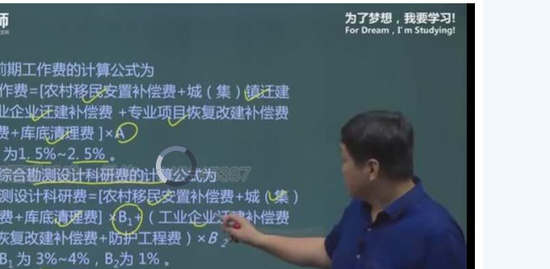 师
为了梦想，我要学习!
For Dream, I'm Studying!
前期工作费的计算公式为
作费=[农村移民安置补偿费+城（集）镇迁建
业企业迁建补偿费 +专业项目恢复改建补偿费
费+库底清理费 ]×A
为1.5%~2.5% 。
综合勘测设计科研费的计算公式为
测设计科研费=[农村移民安置补偿费+城（集）
费+库底清理费] ×B₁+（ 工业企业迁建补偿费
恢复改建补偿费+防护工程费）×B₂
B₁ 为 3%~4%，B₂为 1% 。